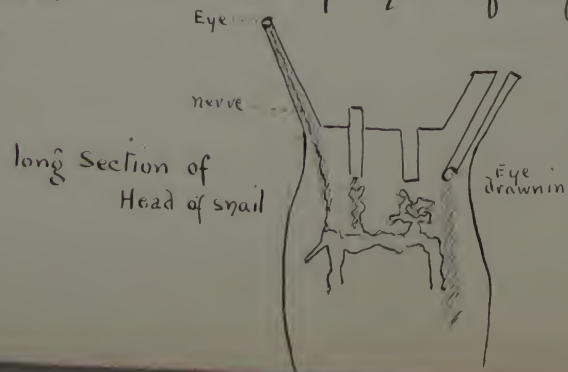 Eye
nerve
long Section of
Head of snail
Eye
drawn in